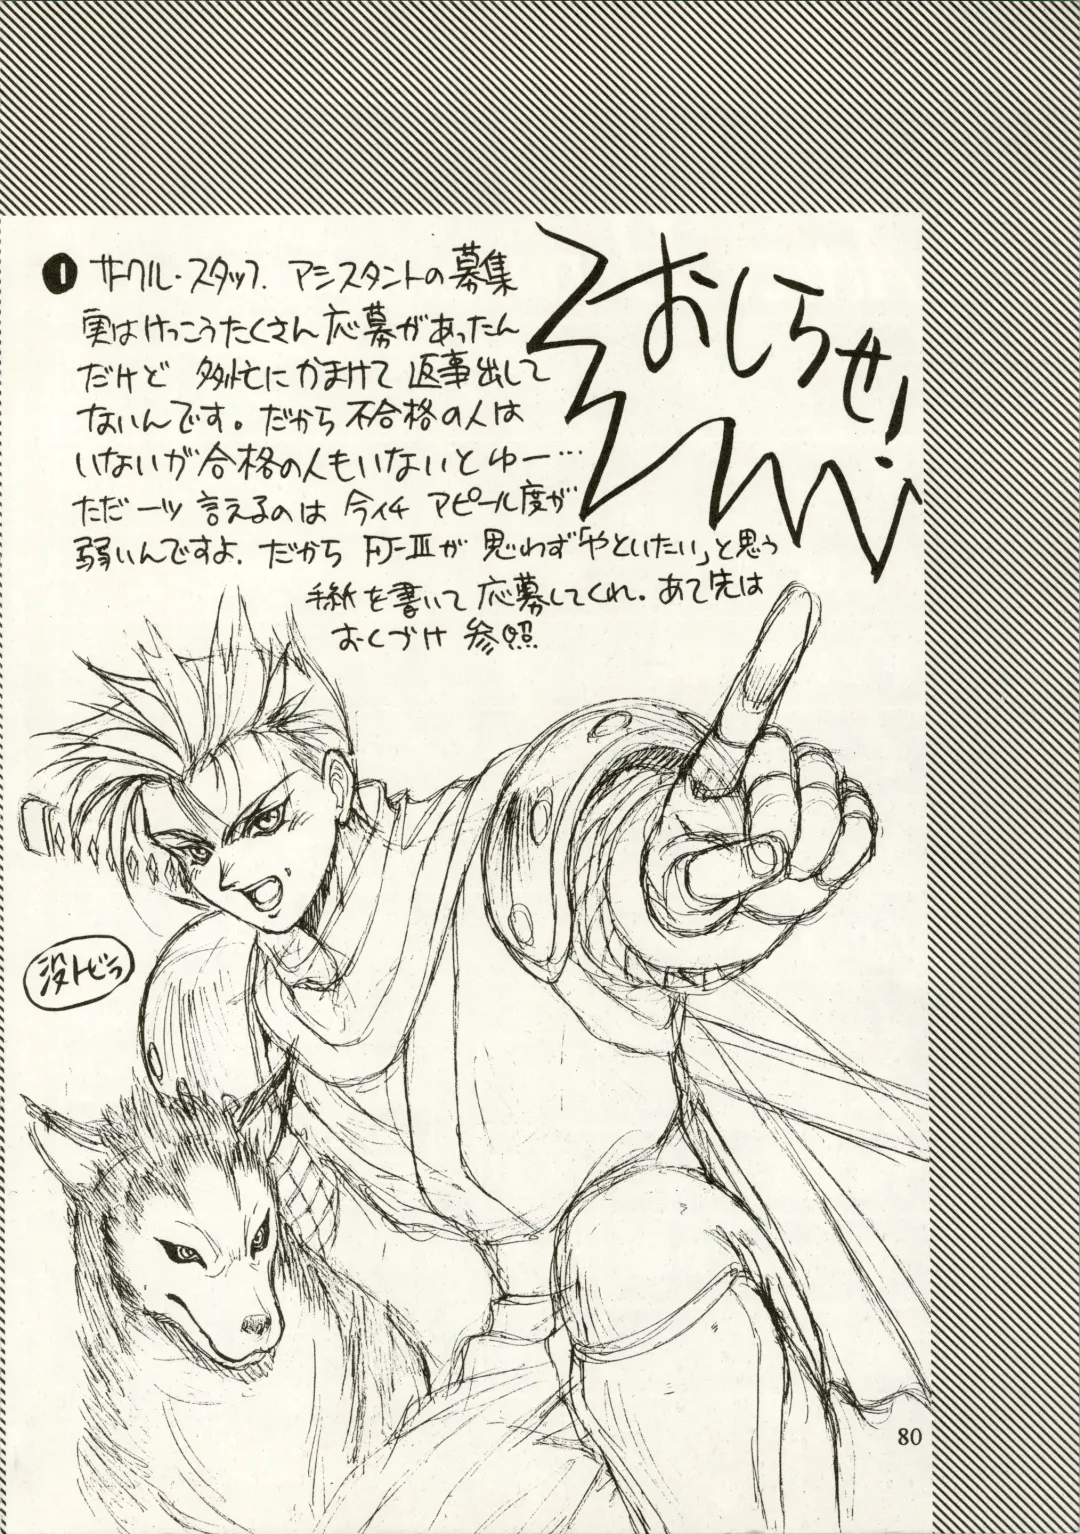 おしらせ!
❶ サークル・スタッフ、アシスタントの募集
実はけっこうたくさん応募があったん
だけど 多忙にかまけて 返事出して
ないんです。だから不合格の人は
いないが合格の人もいないとゆー…
ただ一ツ 言えるのは 今イチ アピール度が
弱いんですよ。だから FJ-Ⅲが 思わず「やといたい」と思う
手紙を書いて 応募してくれ。あて先は
おくづけ 参照
没トビラ
80